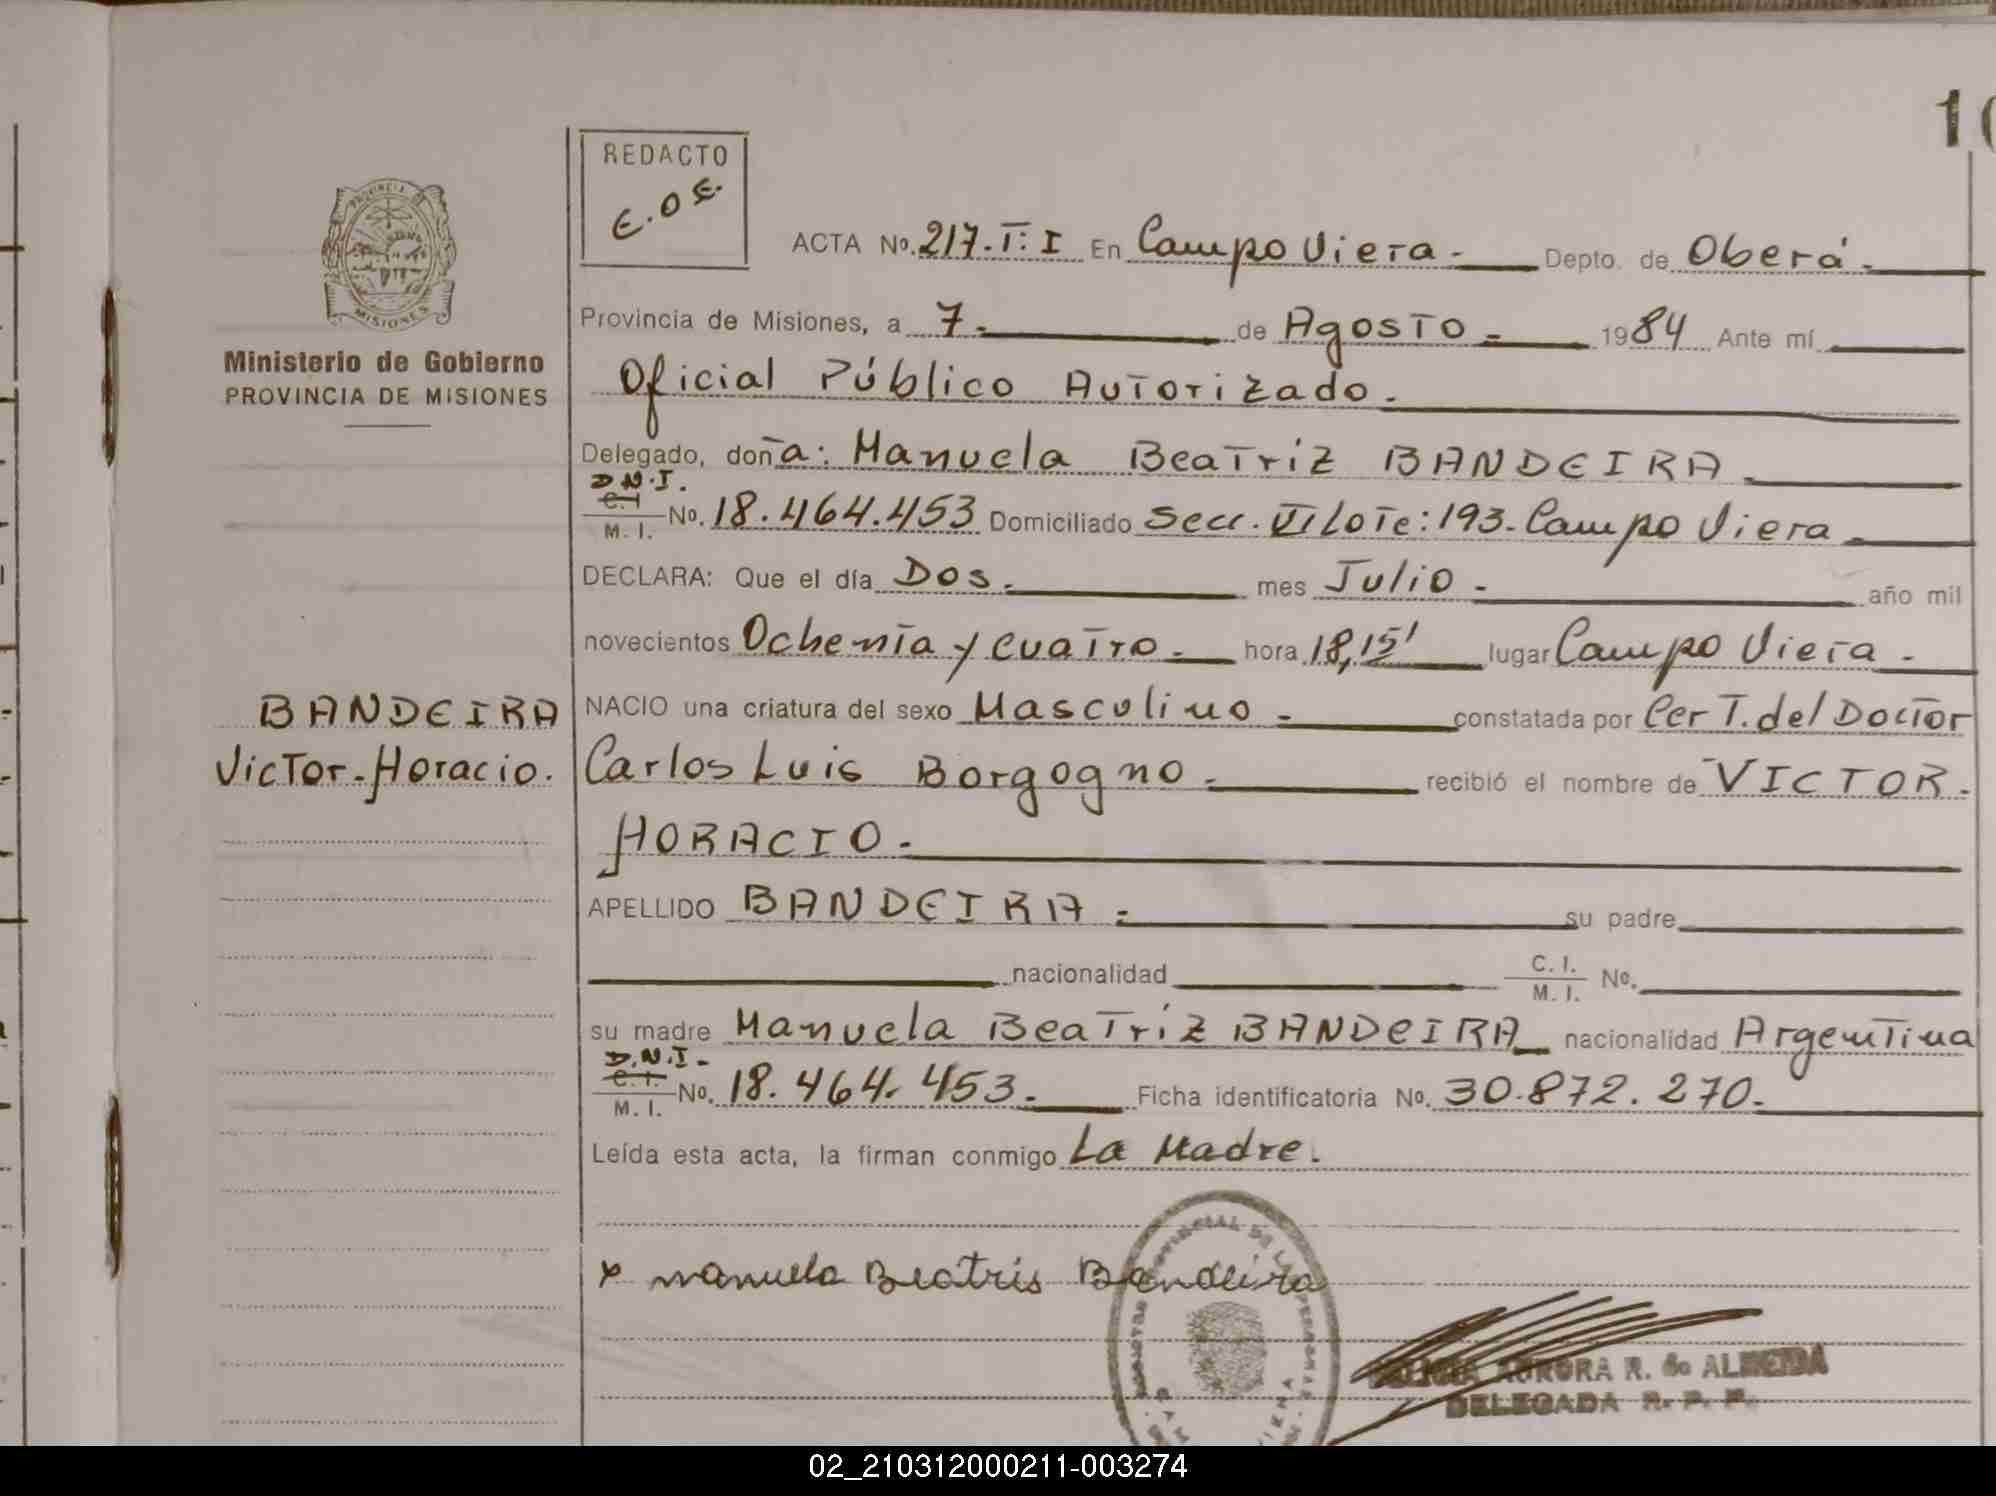 10
REDACTO
E.O.E.
PROVINCIA DE
MISIONES
Ministerio de Gobierno
PROVINCIA DE MISIONES
ACTA No. 217.T:I En Campo Viera.- Depto. de Oberá.-
Provincia de Misiones, a 7.- de Agosto.- 1984 Ante mí
Oficial Público Autorizado.
Delegado, doña: Manuela Beatríz BANDEIRA
D.N.I.
C.I. M. I. No. 18.464.453 Domiciliado Secc. VI Lote: 193. Campo Viera
DECLARA: Que el día Dos.- mes Julio.- año mil
novecientos Ochenta y cuatro.- hora 18,15' lugar Campo Viera.-
NACIO una criatura del sexo Masculino.- constatada por Cert. del Doctor
Carlos Luis Borgogno.- recibió el nombre de VICTOR.
HORACIO.-
BANDEIRA
Victor-Horacio.
APELLIDO BANDEIRA.- su padre
nacionalidad C. I. M. I. No.
su madre Manuela Beatríz BANDEIRA nacionalidad Argentina
D.N.I.-
C. I. M. I. No. 18.464.453.- Ficha identificatoria No. 30.872.270.-
Leída esta acta, la firman conmigo La Madre.
x manuela Beatris Bandeira
AURORA R. de ALMEIDA
DELEGADA R. P. P.
02_210312000211-003274